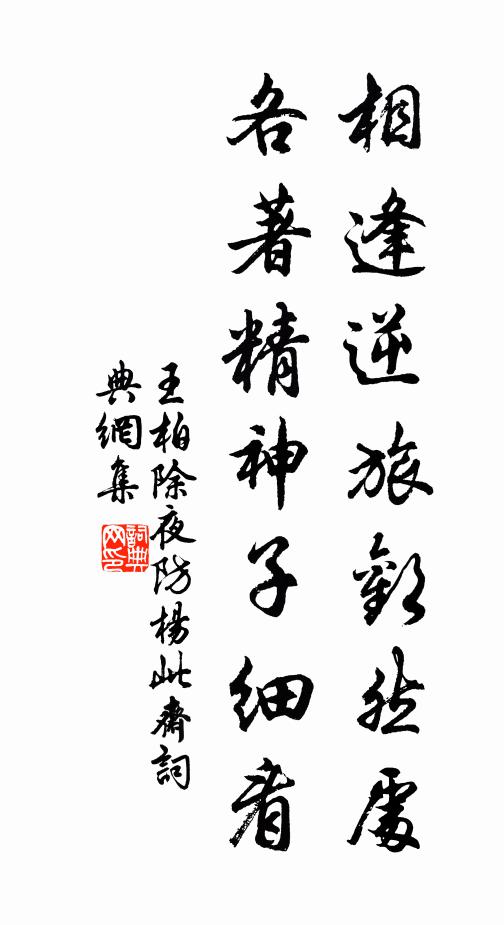 相逢逆旅歡然處
各著精神子細看
王柏除夜防楊此齋詞
典網集
詞典網印